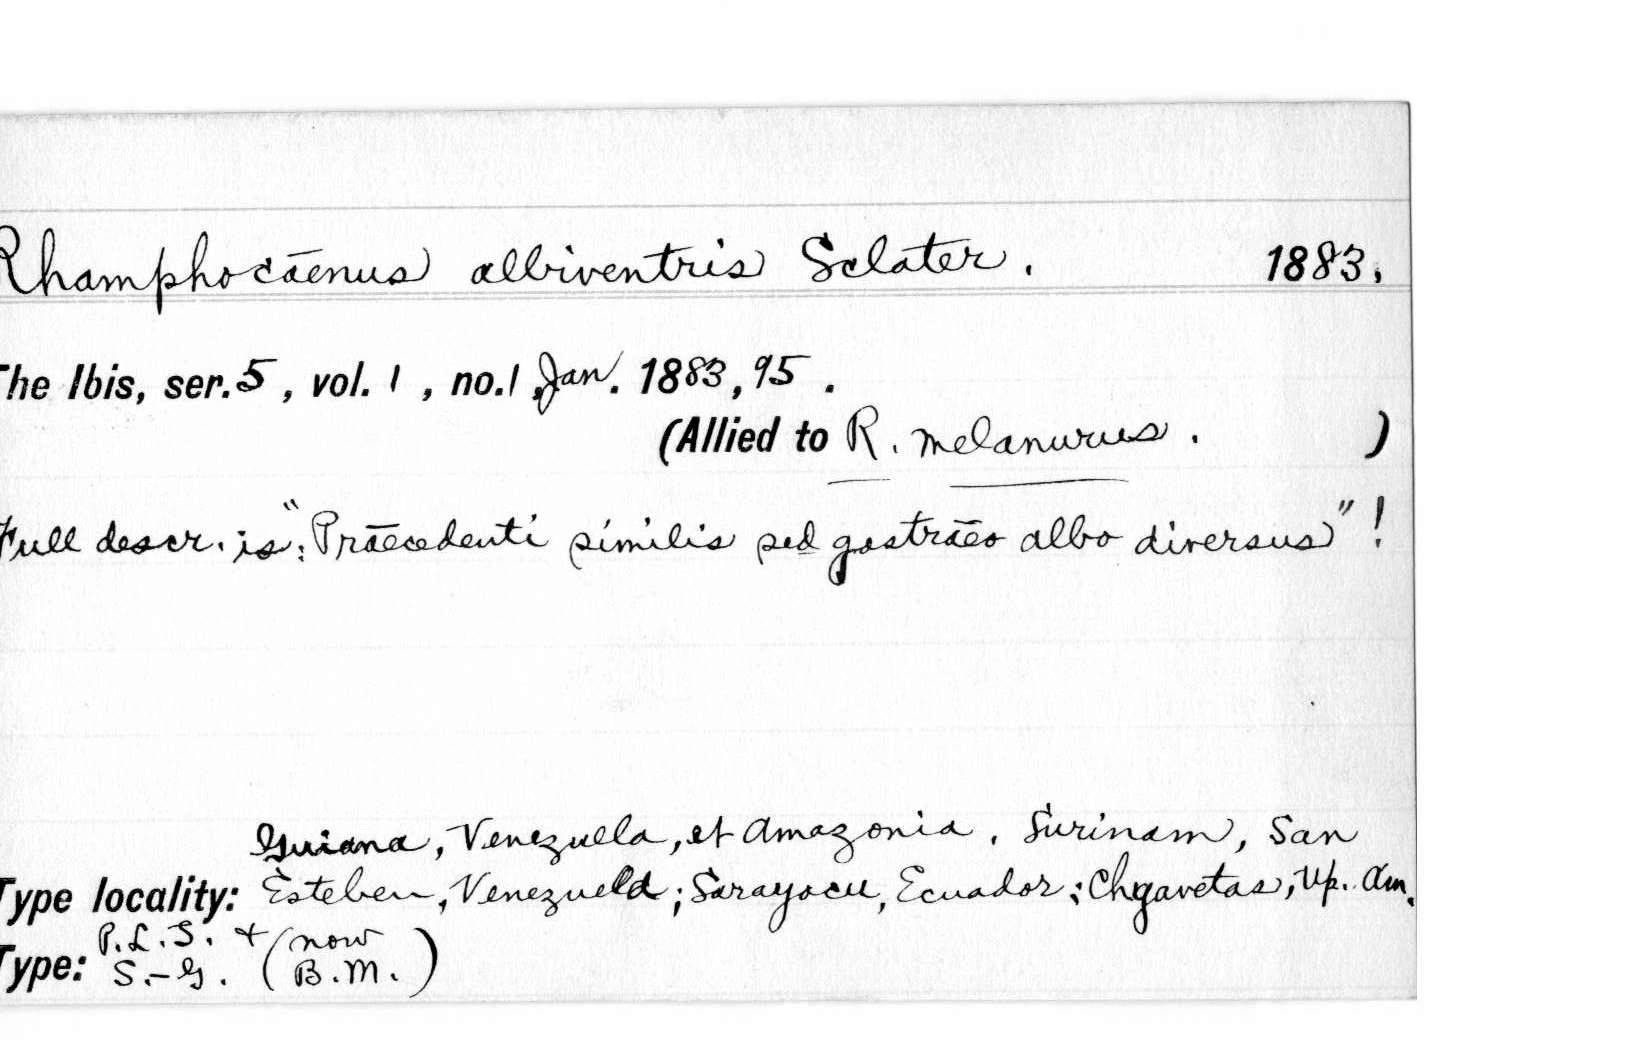 Rhamphocaenus albiventris Sclater. 1883.
The Ibis, ser. 5, vol. 1, no. 1, Jan. 1883, 95.
(Allied to R. melanurus.)
Full descr. is: "Praecedenti similis sed gastraeo albo diversus"!
Guiana, Venezuela, et Amazonia. Surinam, San
Type locality: Esteben, Venezuela; Sarayacu, Ecuador; Chyavetas, Up. Am.
P.L.S. + (now
Type: S.-G. B.M.)